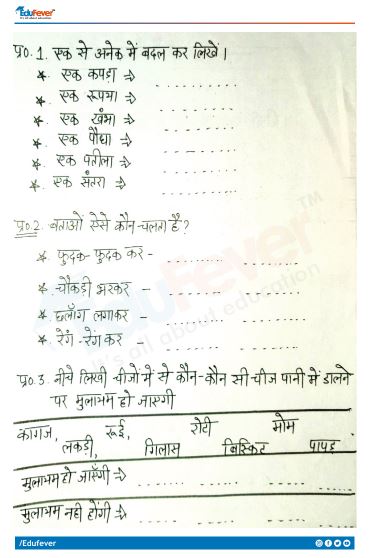 EduFever
It's all about education
प्र०.1. एक से अनेक में बदल कर लिखें।
* एक कपड़ा ⇒ ..........
* एक रूपया ⇒ ..........
* एक खंभा ⇒ ..........
* एक पौधा ⇒ ..........
* एक पतीला ⇒ ..........
* एक संतरा ⇒ ..........
प्र०.2. बताओं ऐसे कौन-चलता है?
* फुदक-फुदक कर - .......... ..........
* चौकड़ी भरकर - .......... ..........
* छलाँग लगाकर - .......... ..........
* रेंग-रेंग कर - .......... ..........
EduFever TM
It's all about education
प्र०.3. नीचे लिखी चीजों में से कौन-कौन सी चीज पानी में डालने
पर मुलायम हो जाएगी
कागज, रूई, रोटी मोम
लकड़ी, गिलास बिस्किट पापड़
मुलायम हो जाएँगी ⇒ ...... ...... ...... ......
मुलायम नही होंगी ⇒ ...... ...... ...... ......
/Edufever